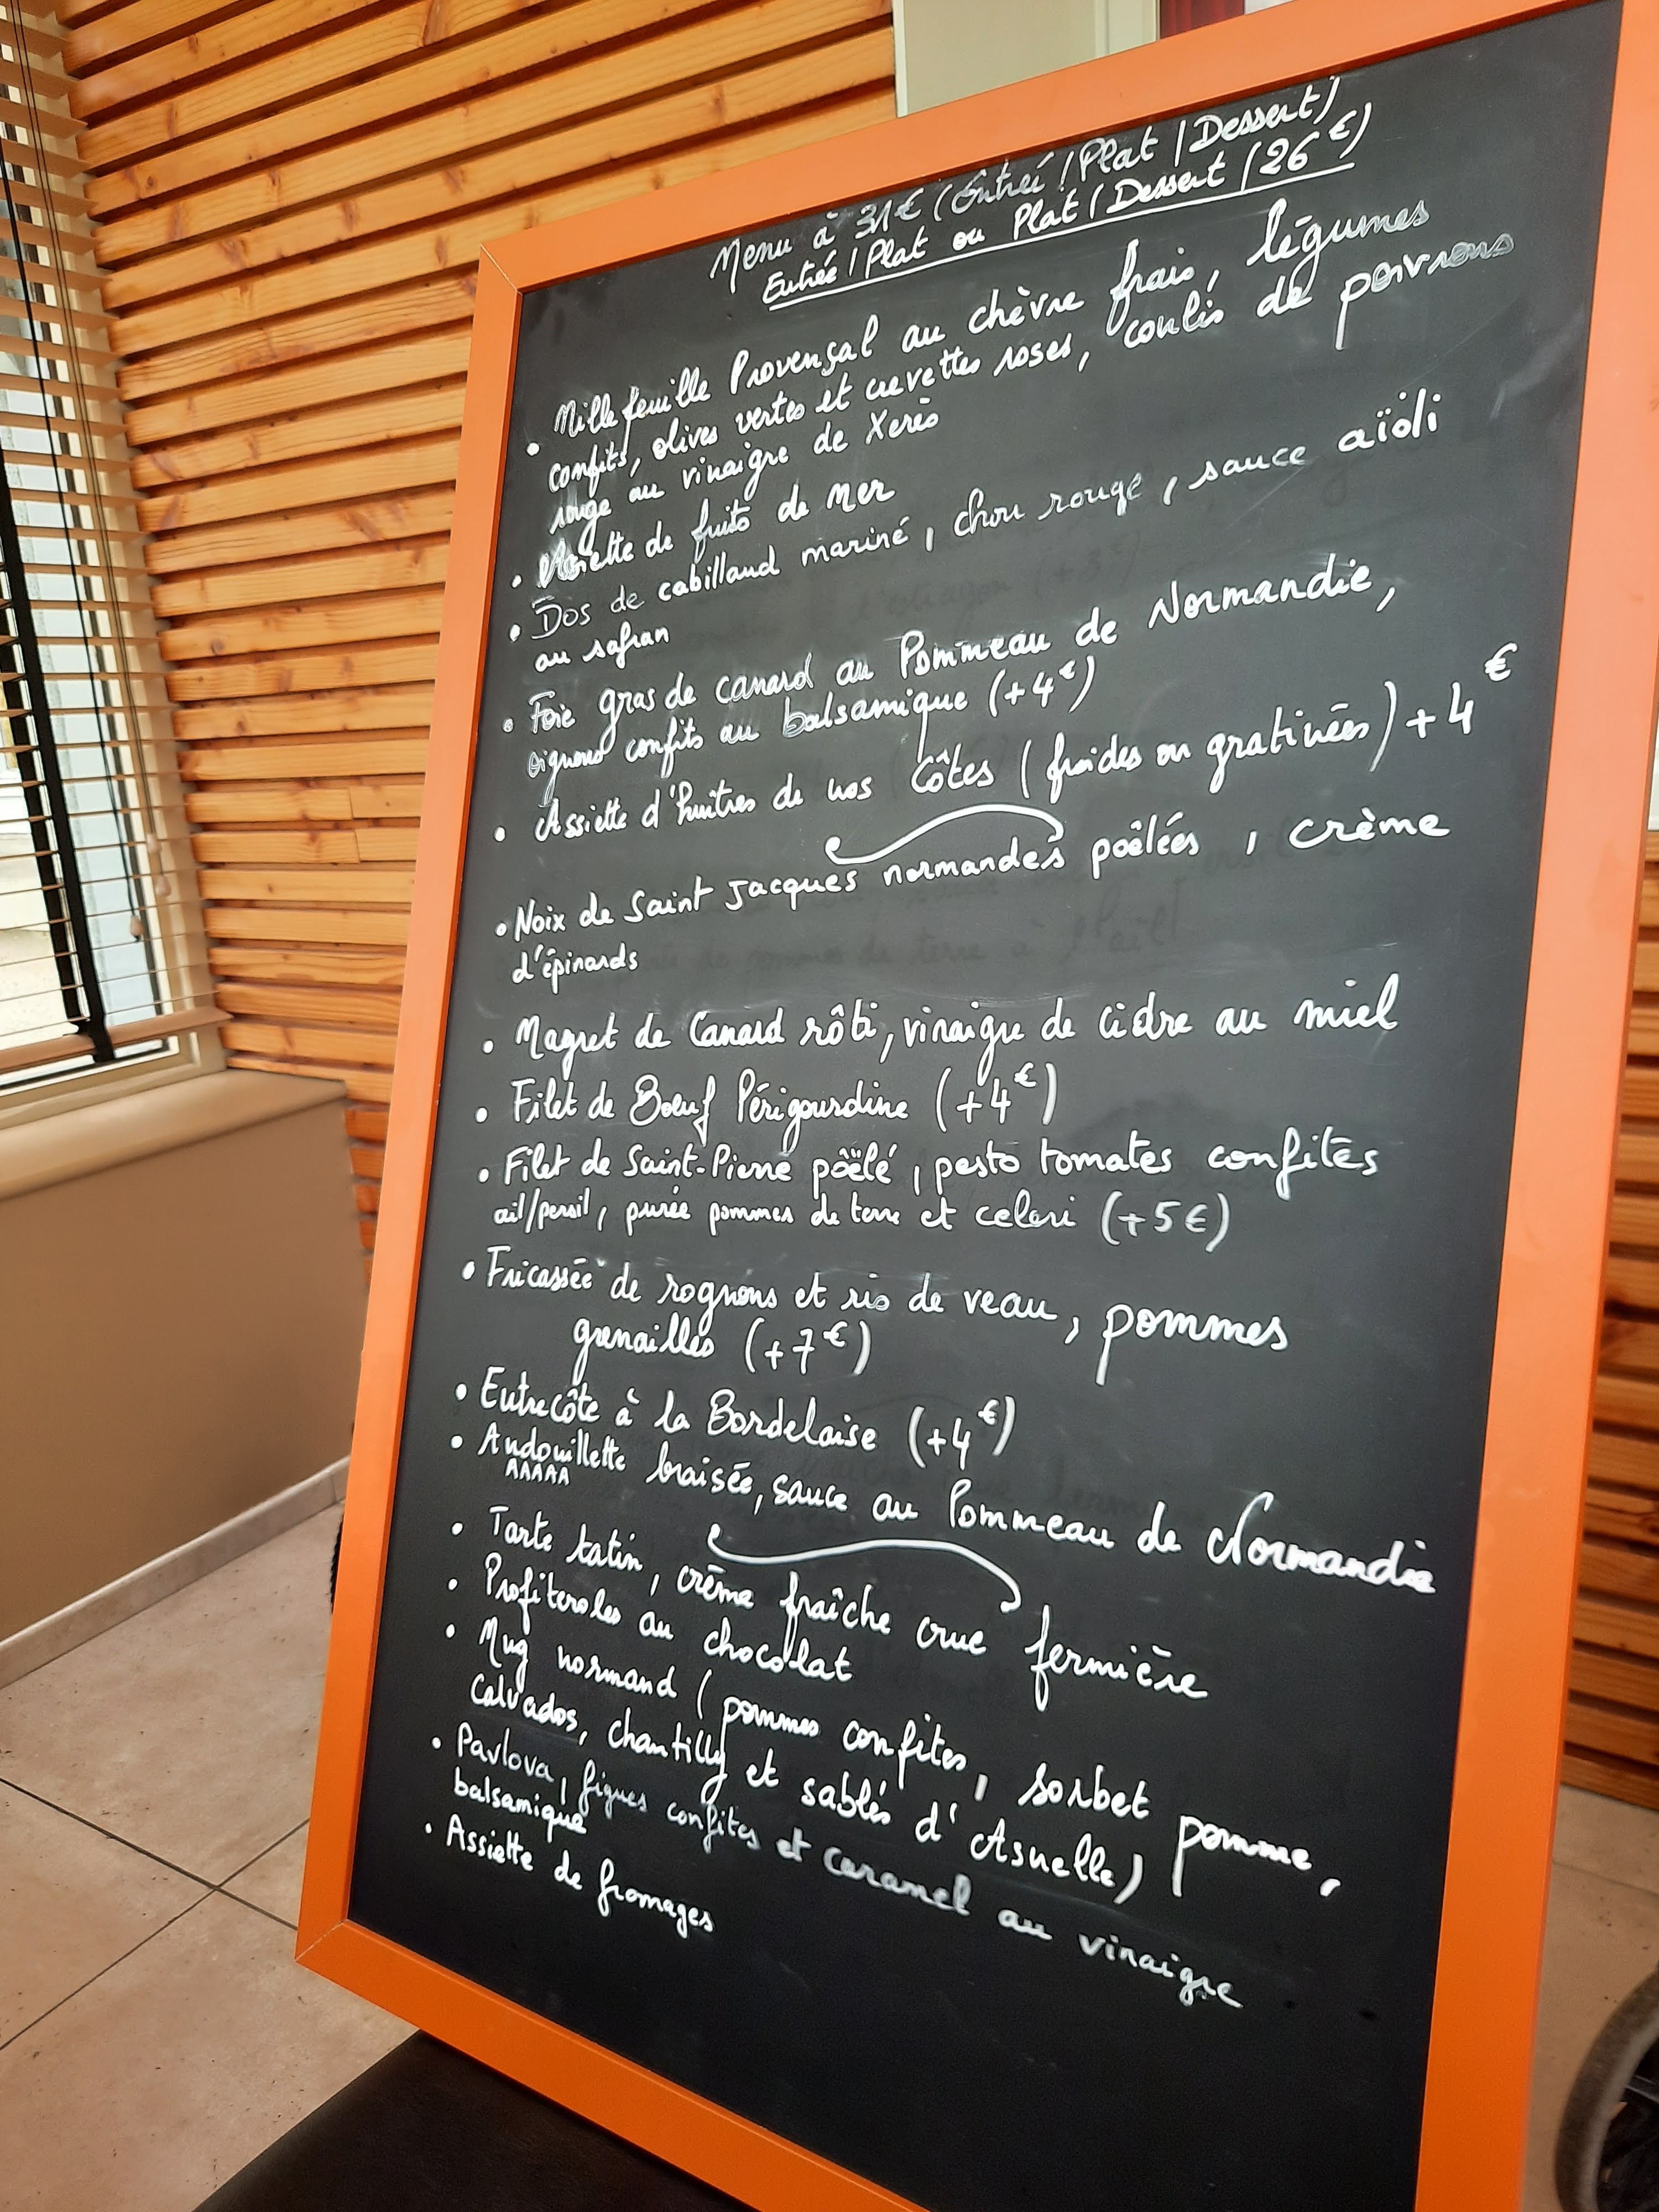 Menu à 31€ (Entrée / Plat / Dessert)
Entrée / Plat ou Plat / Dessert (26€)
• Mille feuille Provençal au chèvre frais, légumes
confits, olives vertes et crevettes roses, coulis de poivrons
rouge au vinaigre de Xerès
• Assiette de fruits de Mer
• Dos de cabillaud mariné, chou rouge, sauce aïoli
au safran
• Foie gras de canard au Pommeau de Normandie,
oignons confits au balsamique (+4€)
• Assiette d'huîtres de nos Côtes (froides ou gratinées) +4€
• Noix de Saint Jacques normandes poêlées, crème
d'épinards
• Magret de Canard rôti, vinaigre de cidre au miel
• Filet de Boeuf Périgourdine (+4€)
• Filet de Saint-Pierre poêlé, pesto tomates confites
ail/persil, purée pommes de terre et celeri (+5€)
• Fricassée de rognons et ris de veau, pommes
grenailles (+7€)
• Entrecôte à la Bordelaise (+4€)
• Andouillette braisée, sauce au Pommeau de Normandie
AAAAA
• Tarte tatin, crème fraîche crue fermière
• Profiteroles au chocolat
• Mug normand (pommes confites, sorbet pomme,
Calvados, chantilly et sablés d'Asnelle)
• Pavlova, figues confites et caramel au vinaigre
balsamique
• Assiette de fromages